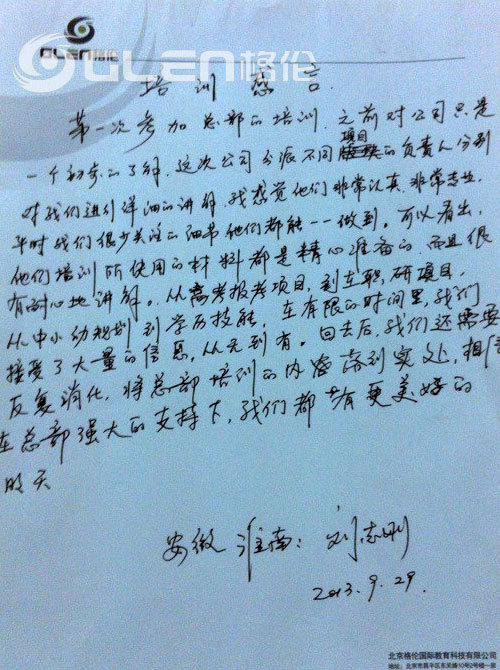 GLEN格伦
GLEN格伦
培训感言
第一次参加总部的培训，之前对公司只是
一个初步的了解，这次公司分派不同项目的负责人分别
对我们进行详细的讲解，我感觉他们非常认真、非常专业，
平时我们很少关注的细节他们都能一一做到。可以看出，
他们培训所使用的材料都是精心准备的，而且很
有耐心地讲解。从高考报考项目，到在职研项目，
从中小幼规划到学历技能，在有限的时间里，我们
接受了大量的信息，从无到有。回去后，我们还需要
反复消化，将总部培训的内容落到实处，相信
在总部强大的支持下，我们都有更美好的
明天
安徽淮南：刘志刚
2013.9.29.
北京格伦国际教育科技有限公司
地址：北京市昌平区东关路10号2号楼一部